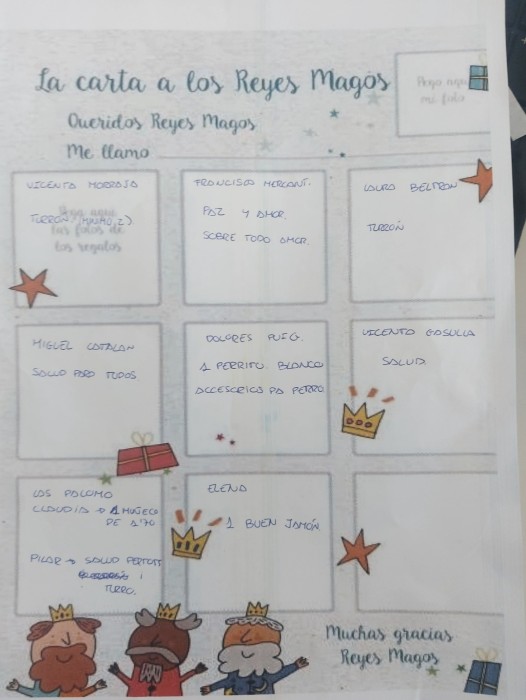 La carta a los Reyes Magos
Pega aquí
mi foto
Queridos Reyes Magos
Me llamo
VICENTA MORROJA
TURRÓN
Pega aquí
las fotos de
los regalos
FRANCISCO MERCANT.
PAZ Y AMOR.
SOBRE TODO AMOR.
LAURA BELTRAN
TURRÓN
MIGUEL CATALAN
SALUD PARA TODOS
DOLORES PUIG.
1 PERRITO BLANCO
ACCESORIOS PA PERRO
VICENTA GASULLA
SALUD.
LOS PALOMO
CLAUDIA → 1 MUÑECO
DE 1'70
PILAR → SALUD
I
TURRO.
ELENA
1 BUEN JAMÓN
Muchas gracias
Reyes Magos